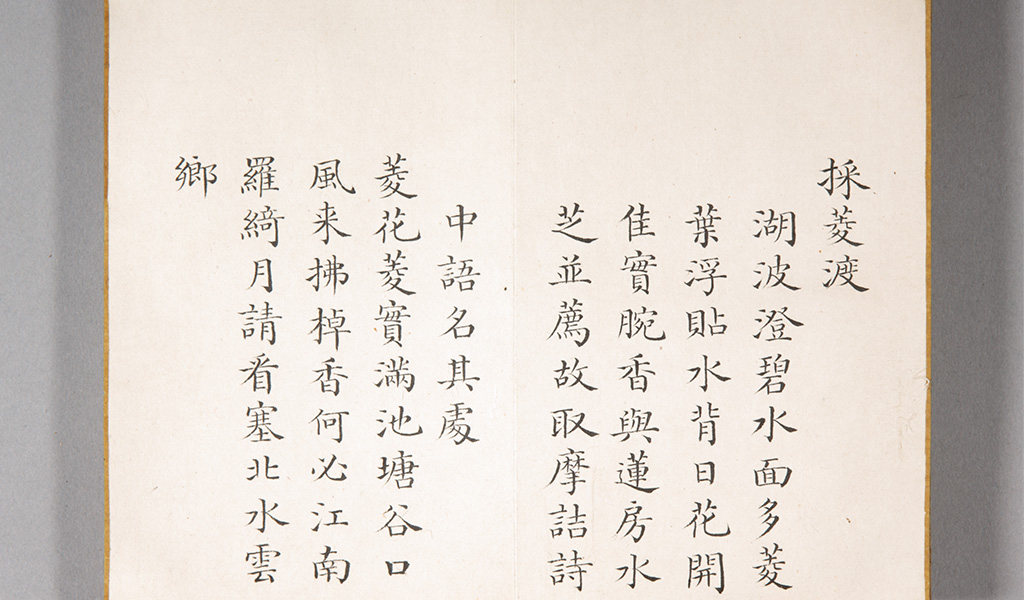 採菱渡
湖波澄碧水面多菱
葉浮貼水背日花開
佳實腕香與蓮房水
芝並薦故取摩詰詩
中語名其處
菱花菱實滿池塘谷口
風来拂棹香何必江南
羅綺月請看塞北水雲
鄉